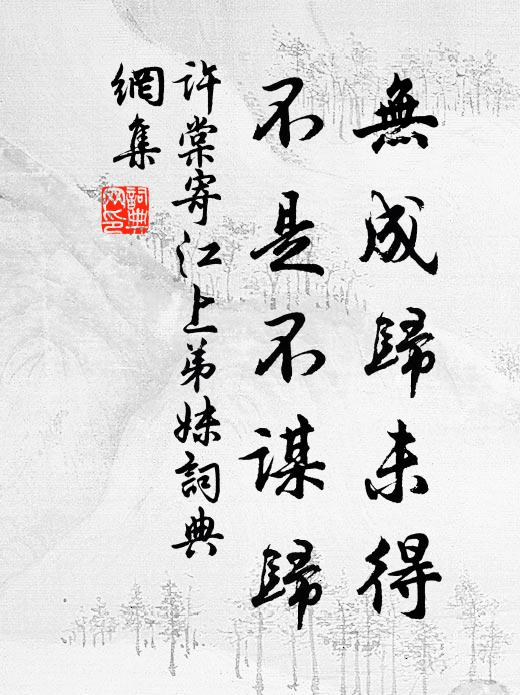 無成歸未得
不是不謀歸
許棠寄江上弟妹詞典
網集
詞典
网印